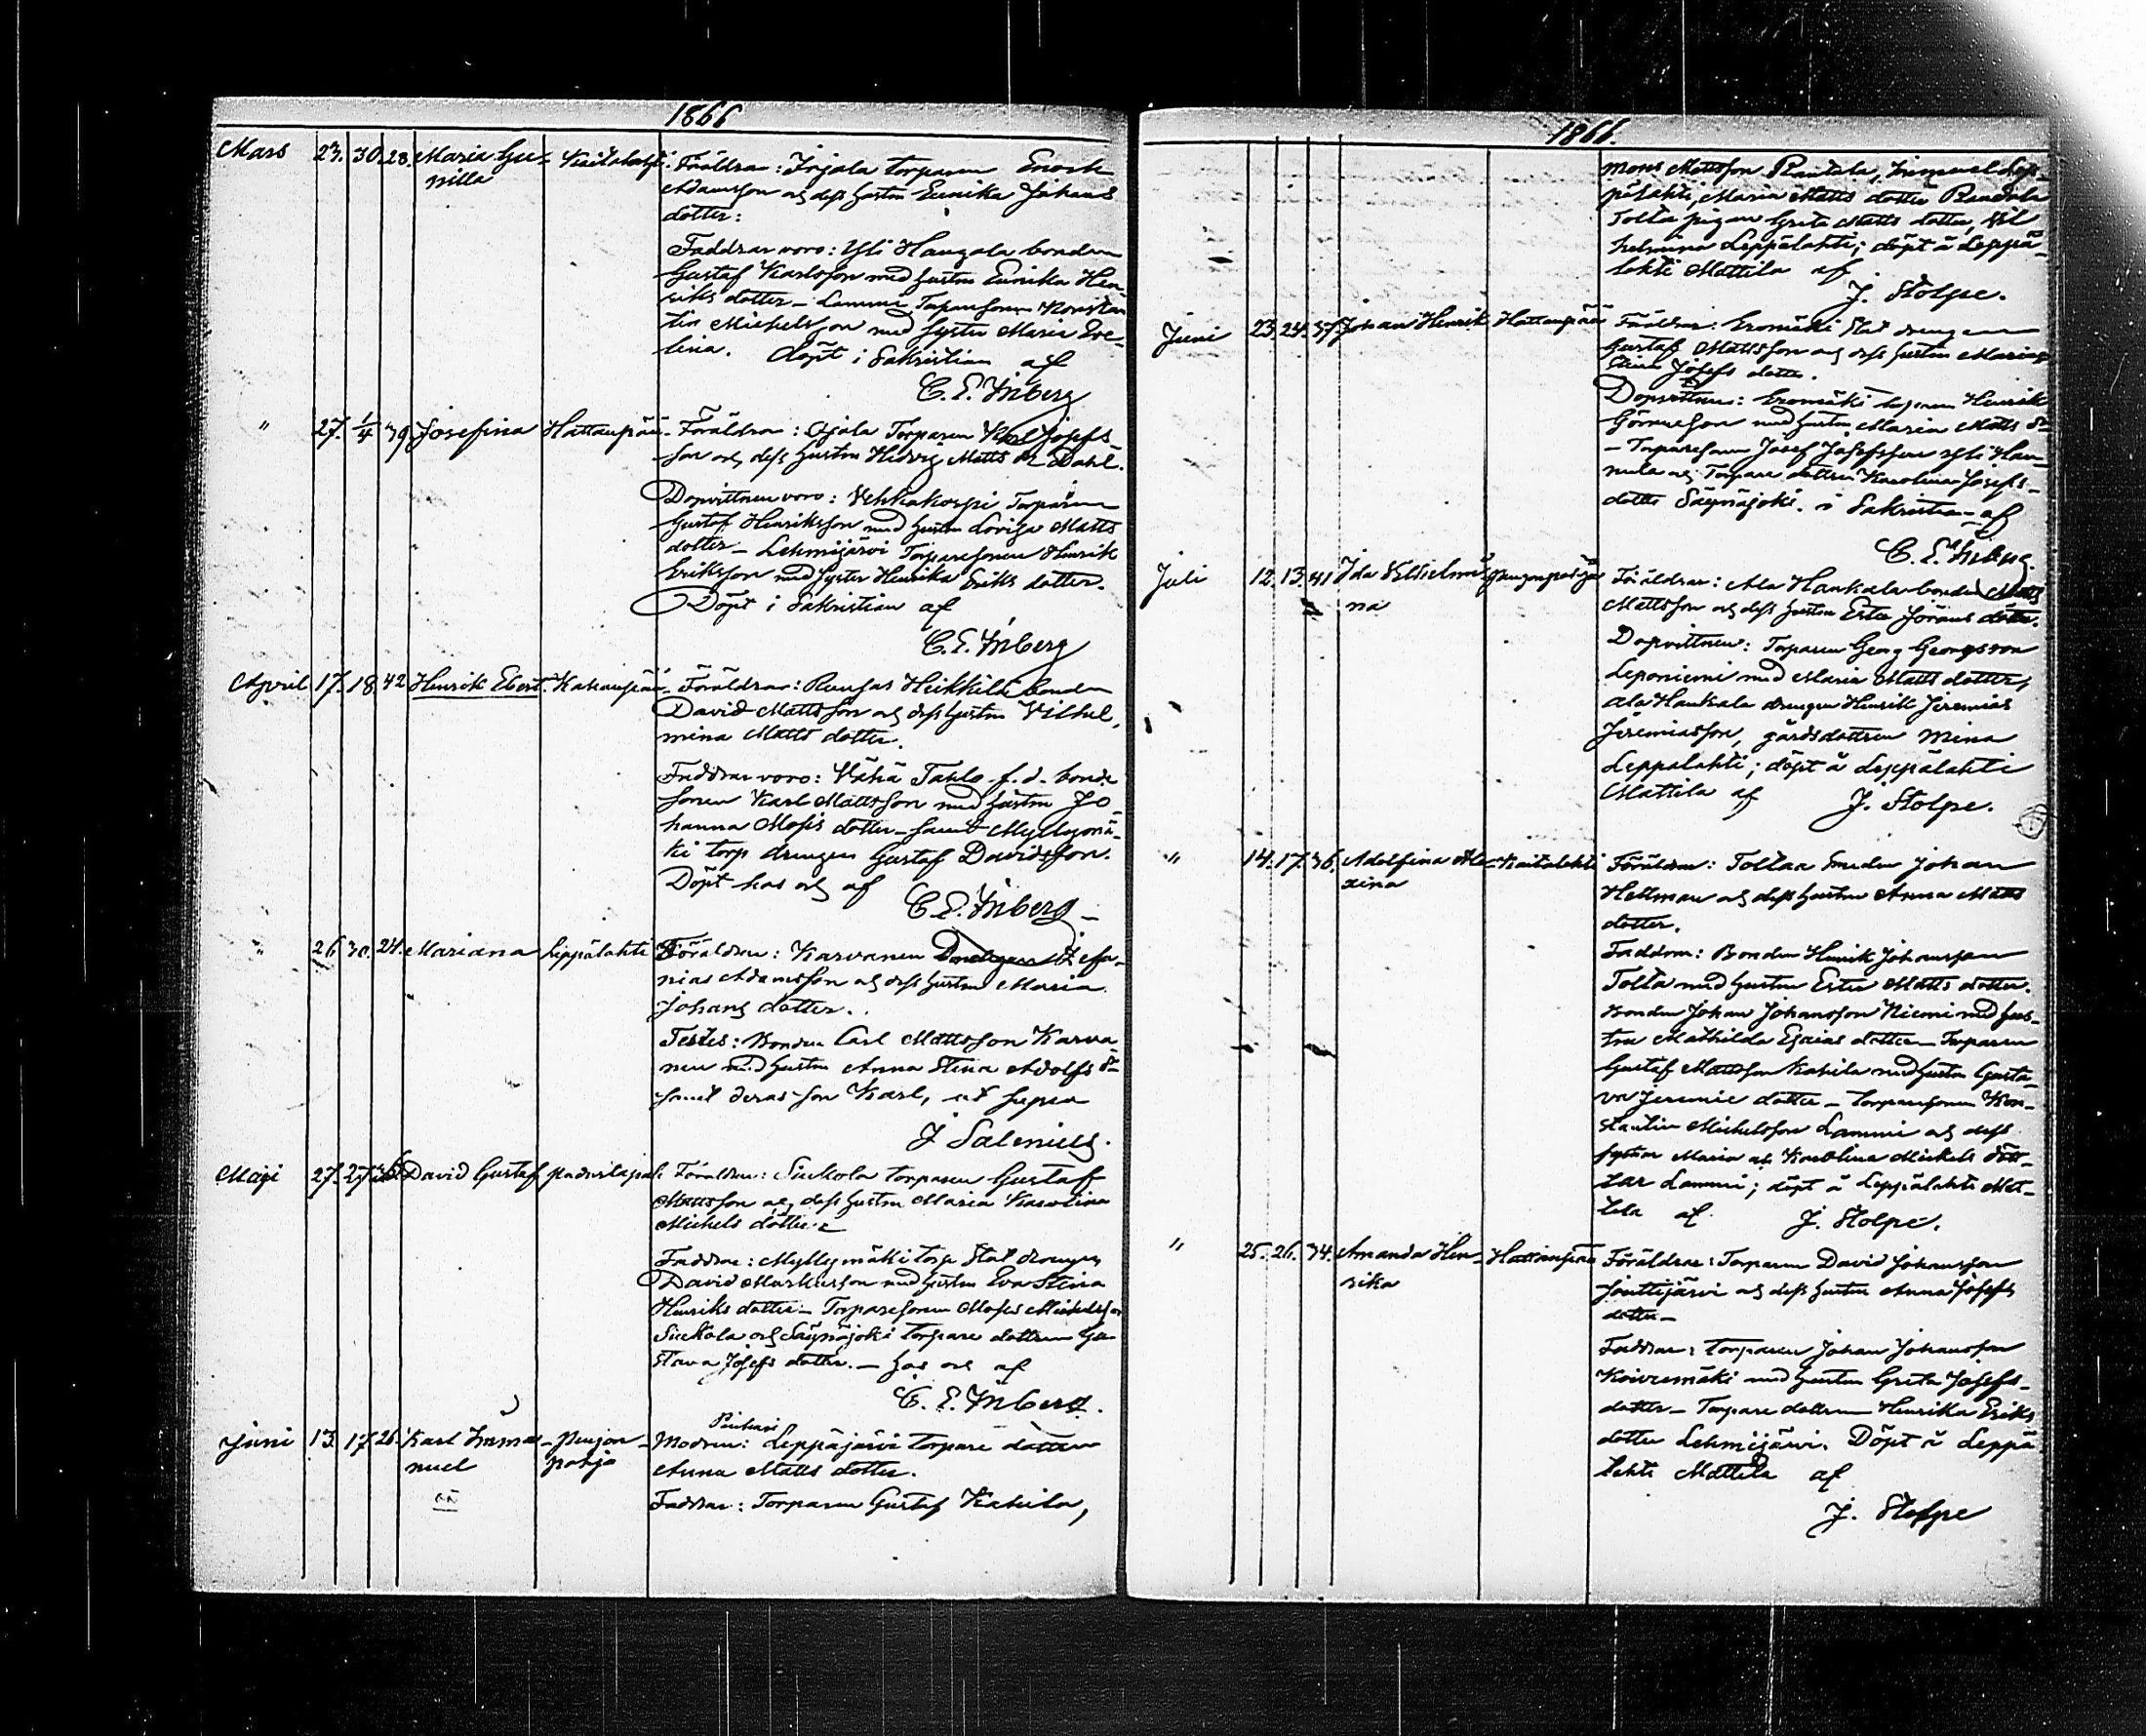 1866
Mars 23. 30. 28. Maria Gu- Kaitalahti. Föräldrar: Irjala torparen Enock
nilla Adamsson och dess hustru Eunika Johans
dotter:
Faddrar voro: Yli Haugala bonden
Gustaf Karlsson med hustru Eunika Hen-
riks dotter – Lammi Torparesonen Konstan
tin Michelsson med syster Maria Eve-
lina. döpt i Sakristian af
C. E. Inberg
" 27. 1/4 39 Josefina Hattanpää. Föräldrar: Ojala Torparen Karl Josefs-
son och dess hustru Hedvig Matts dr Dahl.
Dopvittnen voro: Vehkakorpi Torparen
Gustaf Henriksson med hustru Lovisa Matts
dotter – Lehmijärvi Torparesonen Henrik
Eriksson med syster Henrika Eriks dotter.
Döpt i Sakristian af
C. E. Inberg
April 17. 18. 42 Henrik Ebert. Föräldrar: Heikkilä bonden
David Mattsson och dess hustru Vilhel,
mina Matts dotter.
Faddrar voro: Vähä Tahlo f. d. bonde
sonen Karl Mattsson med hustru Jo
hanna Mosis dotter – samt Myllymä-
ki torp drengen Gustaf Davidsson.
Döpt hos och af
C. E. Inberg –
" 26 30. 24. Mariana Leppälahti Föräldrar: Karvanen Zefa-
nias Adamsson och dess hustru Maria
Johans dotter.
Testes: Bonden Carl Mattsson Karva
nen med hustru Anna Stina Adolfs dr
samt deras son Karl, ut supra
J Salenius.
Maji 27. 27. David Gustaf Föräldrar: Siukola torparen Gustaf
Mattsson och dess hustru Maria Karolina
Michels dotter
Faddrar: Myllymäki torp Stat drengen
David Markusson med hustru Eva Stina
Henriks dotter – Torparesonen Moses Michelsson
Siukola och Säynäjoki torpare dottren Gu
stava Josefs dotter. – hos och af
C. E. Inberg.
Juni 13. 17. 26. Karl Imma- Pengon- Modren: Leppäjärvi torpare dottren
nuel pohja Anna Matts dotter.
Faddrar: Torparen Gustaf Kahila,
1866.
mons Mattsson Rantala, Immanuel Lep-
pälahti, Maria Matts dotter Rantala
Tolta pigan Greta Matts dotter, Vil
helmina Leppälahti; döpt å Leppä-
lahti Mattila af
J. Stolpe.
Juni 23. 24. 37. Johan Henrik Hattanpää Föräldrar: Eromäki Stat drengen
Gustaf Mattsson och dess hustru Maria
Stina Josefs dotter.
Dopvittnen: Eromäki torparen Henrik
Göransson med hustru Maria Matts dr
– Torparesonen Josef Josefsson Yli Han-
nula och Torpare dottren Karolina Josefs-
dotter Säynäjoki. i Sakristian af
C. E. Inberg.
Juli 12. 13. 41. Ida Vilhelmi- Pengonpohja Föräldrar: Ala Hankala bonden Matts
na Mattsson och dess hustru Ester Jörans dotter.
Dopvittnen: Torparen Georg Georgsson
Leponiemi med Maria Matts dotter,
Ala Hankala drengen Henrik Jeremias
Jeremiasson, gårdsdottren Mina
Leppälahti; döpt å Leppälahti
Mattila af J. Stolpe.
" 14. 17. 36. Adolfina Ale- Kaitalahti Föräldrar: Toltaa Smeden Johan
xina Hellman och dess hustru Anna Matts
dotter.
Faddrar: Bonden Henrik Johansson
Tolta med hustru Ester Matts dotter.
Bonden Johan Johansson Niemi med hus-
tru Mathilda Esaias dotter – Torparen
Gustaf Mattsson Kahila med hustru Gusta-
va Jeremie dotter – torparesonen Kon-
stantin Michelsson Lammi och dess
systrar Maria och Karolina Michels dött-
rar Lammi; döpt å Leppälahti Mat-
tila af J. Stolpe.
" 25. 26. 34. Amanda Hen- Hattanpää Föräldrar: Torparen David Johansson
rika Jouttijärvi och dess hustru Anna Josefs
dotter –
Faddrar: torparen Johan Johansson
Koivumäki med hustru Greta Josefs-
dotter – Torpare dottren Henrika Eriks
dotter Lehmijärvi. Döpt å Leppä
lahti Mattila af
J. Stolpe